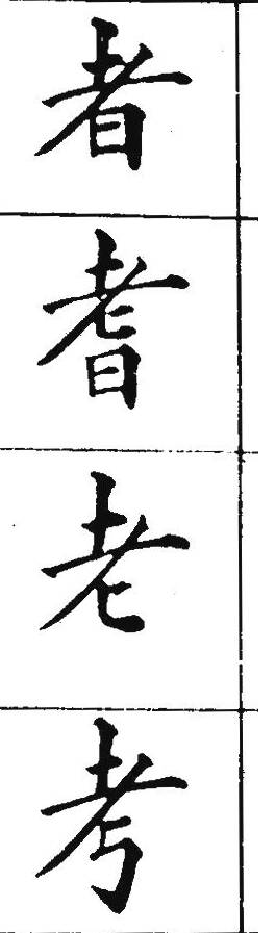 者
耆
老
考